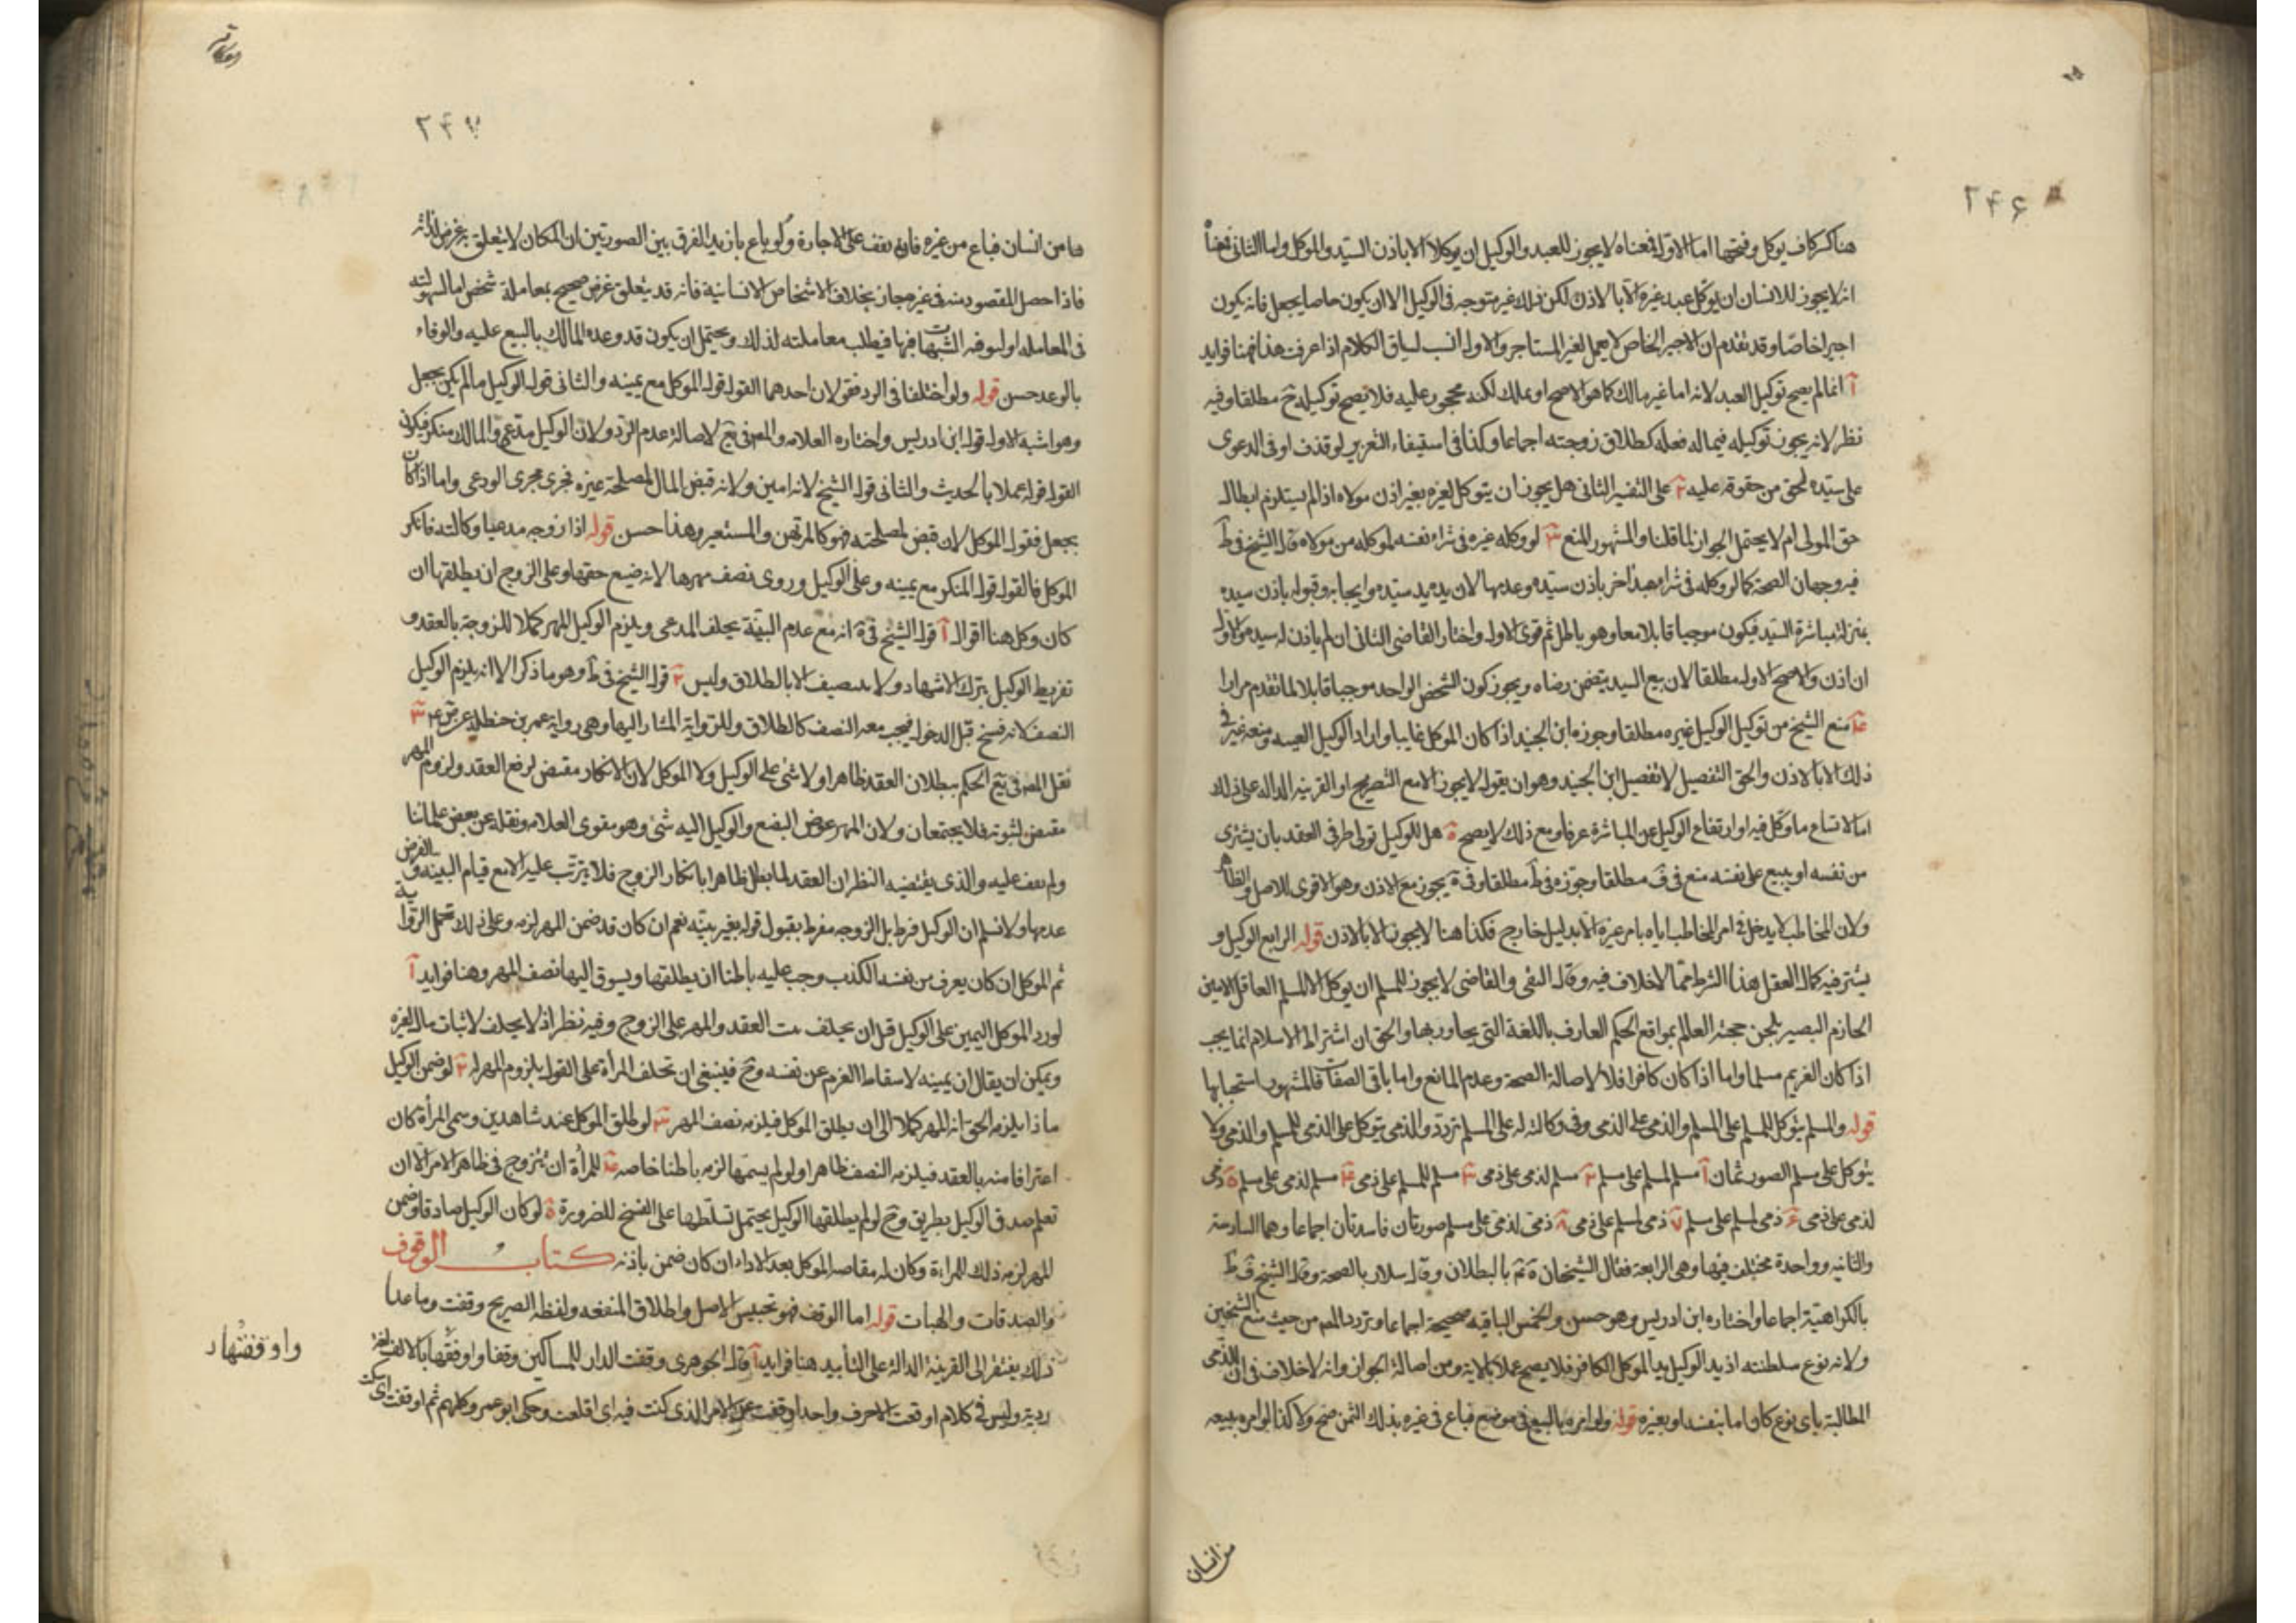 ٢۴۶
هنا كسر كاف يوكل وفتحها اما الاول فمعناه لا يجوز للعبد والوكيل ان يوكلا الا باذن السيد والموكل واما الثانى فمعناه
انه لا يجوز للانسان ان يوكل عبد غيره الا بالاذن لكن ذلك غير متوجه فى الوكيل الا ان يكون خاصا بجعل فانه يكون
اجيرا خاصا وقد تقدم ان الاجير الخاص لا يعمل لغير المستاجر والاول انسب لسياق الكلام اذا عرفت هذا فهنا فوايد
آ انما لم يصح توكيل العبد لانه اما غير مالك كما هو الاصح او يملك لكنه محجور عليه فلا يصح توكيله ح مطلقا وفيه
نظر لانه يجوز توكيله فيما له فعله كطلاق زوجته اجماعا وكذا فى استيفاء التعزير لو قذف او فى الدعوى
على سيده لحق من حقوقه عليه ٢ على التفسير الثانى هل يجوز ان يتوكل لغيره بغير اذن مولاه اذا لم يستلزم ابطال
حق المولى ام لا يحتمل الجواز لما قلنا والمشهور المنع ٣ لو وكله غيره فى شراء نفسه لموكله من مولاه قال الشيخ فى ط
فيه وجهان الصحة كما لو وكله فى شراء عبد اخر باذن سيده وعدمها لان يده يد سيده وايجابه وقبوله باذن سيده
بمنزلة مباشرة السيد فيكون موجبا قابلا معا وهو باطل ثم قوى الاول واختار القاضى الثانى ان لم ياذن له سيده والاول
ان اذن والاصح الاول مطلقا لان بيع السيد يتضمن رضاه ويجوز كون الشخص الواحد موجبا قابلا لما تقدم مرارا
۴ منع الشيخ من توكيل الوكيل غيره مطلقا وجوزه ابن الجنيد اذا كان الموكل غايبا واراد الوكيل الغيبه ومنعه فى غير
ذلك الا بالاذن والحق التفصيل لا تفصيل ابن الجنيد وهو ان يقول لا يجوز الا مع التصريح او القرينه الداله على ذلك
اما لاتساع ما وكل فيه او ارتفاع الوكيل عن المباشرة عرفا ومع ذلك لا يصح ۵ هل للوكيل تولى طرفى العقد بان يشترى
من نفسه او يبيع على نفسه منع فى ف مطلقا وجوزه فى ط مطلقا وفى ة يجوز مع الاذن وهو الاقوى للاصل والظاهر
ولان المخاطب لا يدخل فى امر المخاطب اياه بامر غيره الا بدليل خارج فكذا هنا لا يجوز الا بالاذن قوله الرابع الوكيل و
يشترط فيه كمال العقل هذا الشرط مما لا خلاف فيه وقال التقى والقاضى لا يجوز للمسلم ان يوكل الا المسلم العاقل الامين
الحازم البصير بلحن حجته العالم بمواقع الحكم العارف باللغة التى يحاور بها والحق ان اشتراط الاسلام انما يجب
اذا كان الغريم مسلما واما اذا كان كافرا فلا لاصالة الصحة وعدم المانع واما باقى الصفات فالمشهور استحبابها
قوله والمسلم يتوكل للمسلم على المسلم والذمى على الذمى وفى وكالته له على المسلم تردد والذمى يتوكل على الذمى للمسلم والذمى ولا
يتوكل على مسلم الصور ثمان آ مسلم لمسلم على مسلم ٢ مسلم لذمى على ذمى ٣ مسلم لمسلم على ذمى ۴ مسلم لذمى على مسلم ۵ ذمى
لذمى على ذمى ۶ ذمى لمسلم على مسلم ٧ ذمى لمسلم على ذمى ٨ ذمى لذمى على مسلم صورتان فاسدتان اجماعا وهما السادسة
والثانيه وواحدة مختلف فيها وهى الرابعة فقال الشيخان ة ثم بالبطلان وقال سلار بالصحة وقال الشيخ ف ط
بالكراهية اجماعا واختاره ابن ادريس وهو حسن والخمس الباقيه صحيحة اجماعا وتردد المص من حيث منع الشيخين
ولانه نوع سلطنته اذ يد الوكيل يد الموكل الكافر فلا يصح عملا بالاية ومن اصالة الجواز وانه لا خلاف فى ان للذمى
المطالبة باى نوع كان اما بنفسه او بغيره قوله ولو امره بالبيع فى موضع فباع فى غيره بذلك الثمن صح ولا كذا لو امره ببيعه
من انسان
٢۴٧
من انسان فباع من غيره فانه يقف على الاجازة ولو باع بازيد الفرق بين الصورتين ان المكان لا يتعلق به غرض لذاته
فاذا حصل المقصود منه فى غيره جاز بخلاف الاشخاص الانسانية فانه قد يتعلق غرض صحيح بمعاملة شخص اما لسهولته
فى المعامله او لتوفر الشبهات فيها فيطلب معاملته لذلك ويحتمل ان يكون قد وعده المالك بالبيع عليه والوفاء
بالوعد حسن قوله ولو اختلفا فى الرد فقولان احدهما القول قول الموكل مع يمينه والثانى قول الوكيل ما لم يكن بجعل
وهو اشبه الاول قول ابن ادريس واختاره العلامه والمص فى يع لاصالة عدم الرد ولان الوكيل مدعى والمالك منكر فيكون
القول قوله عملا بالحديث والثانى قول الشيخ لانه امين ولانه قبض المال لمصلحة غيره فجرى مجرى الودعى واما اذا كان
بجعل فقول الموكل لان قبض لمصلحته فهو كالمرتهن والمستعير وهذا حسن قوله اذا زوجه مدعيا وكالته فانكر
الموكل فالقول قول المنكر مع يمينه وعلى الوكيل وروى نصف مهرها لانه ضيع حقها وعلى الزوج ان يطلقها ان
كان وكل هنا اقوال آ قول الشيخ فى ة انه مع عدم البينة يحلف المدعى ويلزم الوكيل المهر كملا للزوجة بالعقد و
تفريط الوكيل بترك الاشهاد ولا ينتصف الا بالطلاق وليس ٢ قول الشيخ فى ط وهو ما ذكر الا انه يلزم الوكيل
النصف لانه فسخ قبل الدخول فيجب معه النصف كالطلاق وللرواية المشار اليها وهى رواية عمر بن حنظله عن ق ع ٣
نقل المص فى يع الحكم ببطلان العقد ظاهرا ولا شئ على الوكيل ولا الموكل لان الانكار مقتض لرفع العقد ولزوم المهر
مقتض لثبوته فلا يجتمعان ولان المهر عوض البضع والوكيل اليه شئ وهو مقوى العلامه ونقله عن بعض علمائنا
ولم يقف عليه والذى يقتضيه النظر ان العقد لما بطل ظاهرا بانكار الزوج فلا يترتب عليه الا مع قيام البينه والفرض
عدمها ولا نسلم ان الوكيل فرط بل الزوجه مفرط بقبول قوله بغير بينه نعم ان كان قد ضمن المهر لزمه وعلى ذلك تحمل الرواية
ثم الموكل ان كان يعرف من نفسه الكذب وجب عليه باطنا ان يطلقها ويسوق اليها نصف المهر وهنا فوايد آ
لو رد الموكل اليمين على الوكيل قيل ان يحلف ثبت العقد والمهر على الزوج وفيه نظر اذ لا يحلف لاثبات مال لغيره
ويمكن ان يقال ان يمينه لاسقاط الغرم عن نفسه وح فينبغى ان تحلف المرأة على القول بلزوم المهر له ٢ لو ضمن الوكيل
ماذا يلزمه الحق انه المهر كملا الى ان يطلق الموكل فيلزمه نصف المهر ٣ لو طلق الموكل عند شاهدين وسمى المرأة كان
اعترافا منه بالعقد فيلزمه النصف ظاهرا ولو لم يسمها لزمه باطنا خاصه ۴ للمرأة ان تتزوج فى ظاهر الامر الا ان
تعلم صدق الوكيل بطريق وح لو لم يطلقها الوكيل يحتمل تسلطها على الفسخ للضرورة ۵ لو كان الوكيل صادقا وضمن
المهر لزمه ذلك للمراءة وكان له مقاصه الموكل بعد الاداء ان كان ضمن باذنه كتاب الوقوف
والصدقات والهبات قوله اما الوقف فهو تحبيس الاصل واطلاق المنفعه ولفظه الصريح وقفت وما عدا
ذلك يفتقر الى القرينة الدالة على التأبيد هنا فوايد آ قال الجوهرى وقفت الدار للمساكين وقفا واوقفها بالالف لغة
ردية وليس فى كلام اوقعت الا حرف واحد اوقفت عن الامر الذى كنت فيه اى اقلعت وحكى ابو عمرو كلمهم ثم اوقفت اى سكت
واوقفتها د